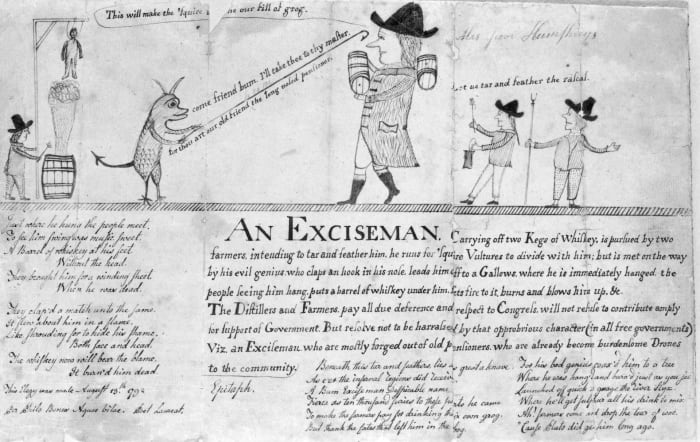 This will make the Squire our bill of grog.
Alas poor Humphreys
come friend bum, I'll take thee to thy master,
for thou art our old friend the long nosed pensioner.
Let us tar and feather the rascal.
AN EXCISEMAN,
Carrying off two Kegs of Whiskey, is pursued by two
farmers, intending to tar and feather him, he runs for 'Squire Vultures to divide with him; but is met on the way
by his evil genius who claps an hook in his nose, leads him off to a Gallows, where he is immediately hanged. the
people seeing him hang, puts a barrel of whiskey under him, sets fire to it, burns and blows him up, &c.
The Distillers and Farmers, pay all due deference and respect to Congress, will not refuse to contribute amply
for support of Government. But resolve not to be harrassed by that opprobrious character (in all free governments)
Viz. an Exciseman, who are mostly forged out of old pensioners, who are already become burdensome Drones
to the community.
Just where he hung the people meet,
To see him swing was music sweet,
A Barrel of whiskey at his feet
Without the head.
They brought him for a winding sheet
When he was dead.
They clap'd a match unto the same,
It flew about him in a flame
Like shrouding for to hide his shame,
Both face and head.
The whiskey now will bear the blame,
It burn'd him dead.
This Elegy was made August 13th, 1792
Epitaph.
Beneath this tar and feathers lies as great a knave
As e'er the infernal legions did receive
A Bum Exciseman
to make the farmers pay for drinking their own grog.
But thank the fates that left him in the
For his bad genius coax'd him to a tree
Where he was hang'd and burn'd just as you see
Where he'll get sulphur all his drink to mix
Ah! farmers come and drop the tear of woe,
'Cause Pluto did get him long ago.